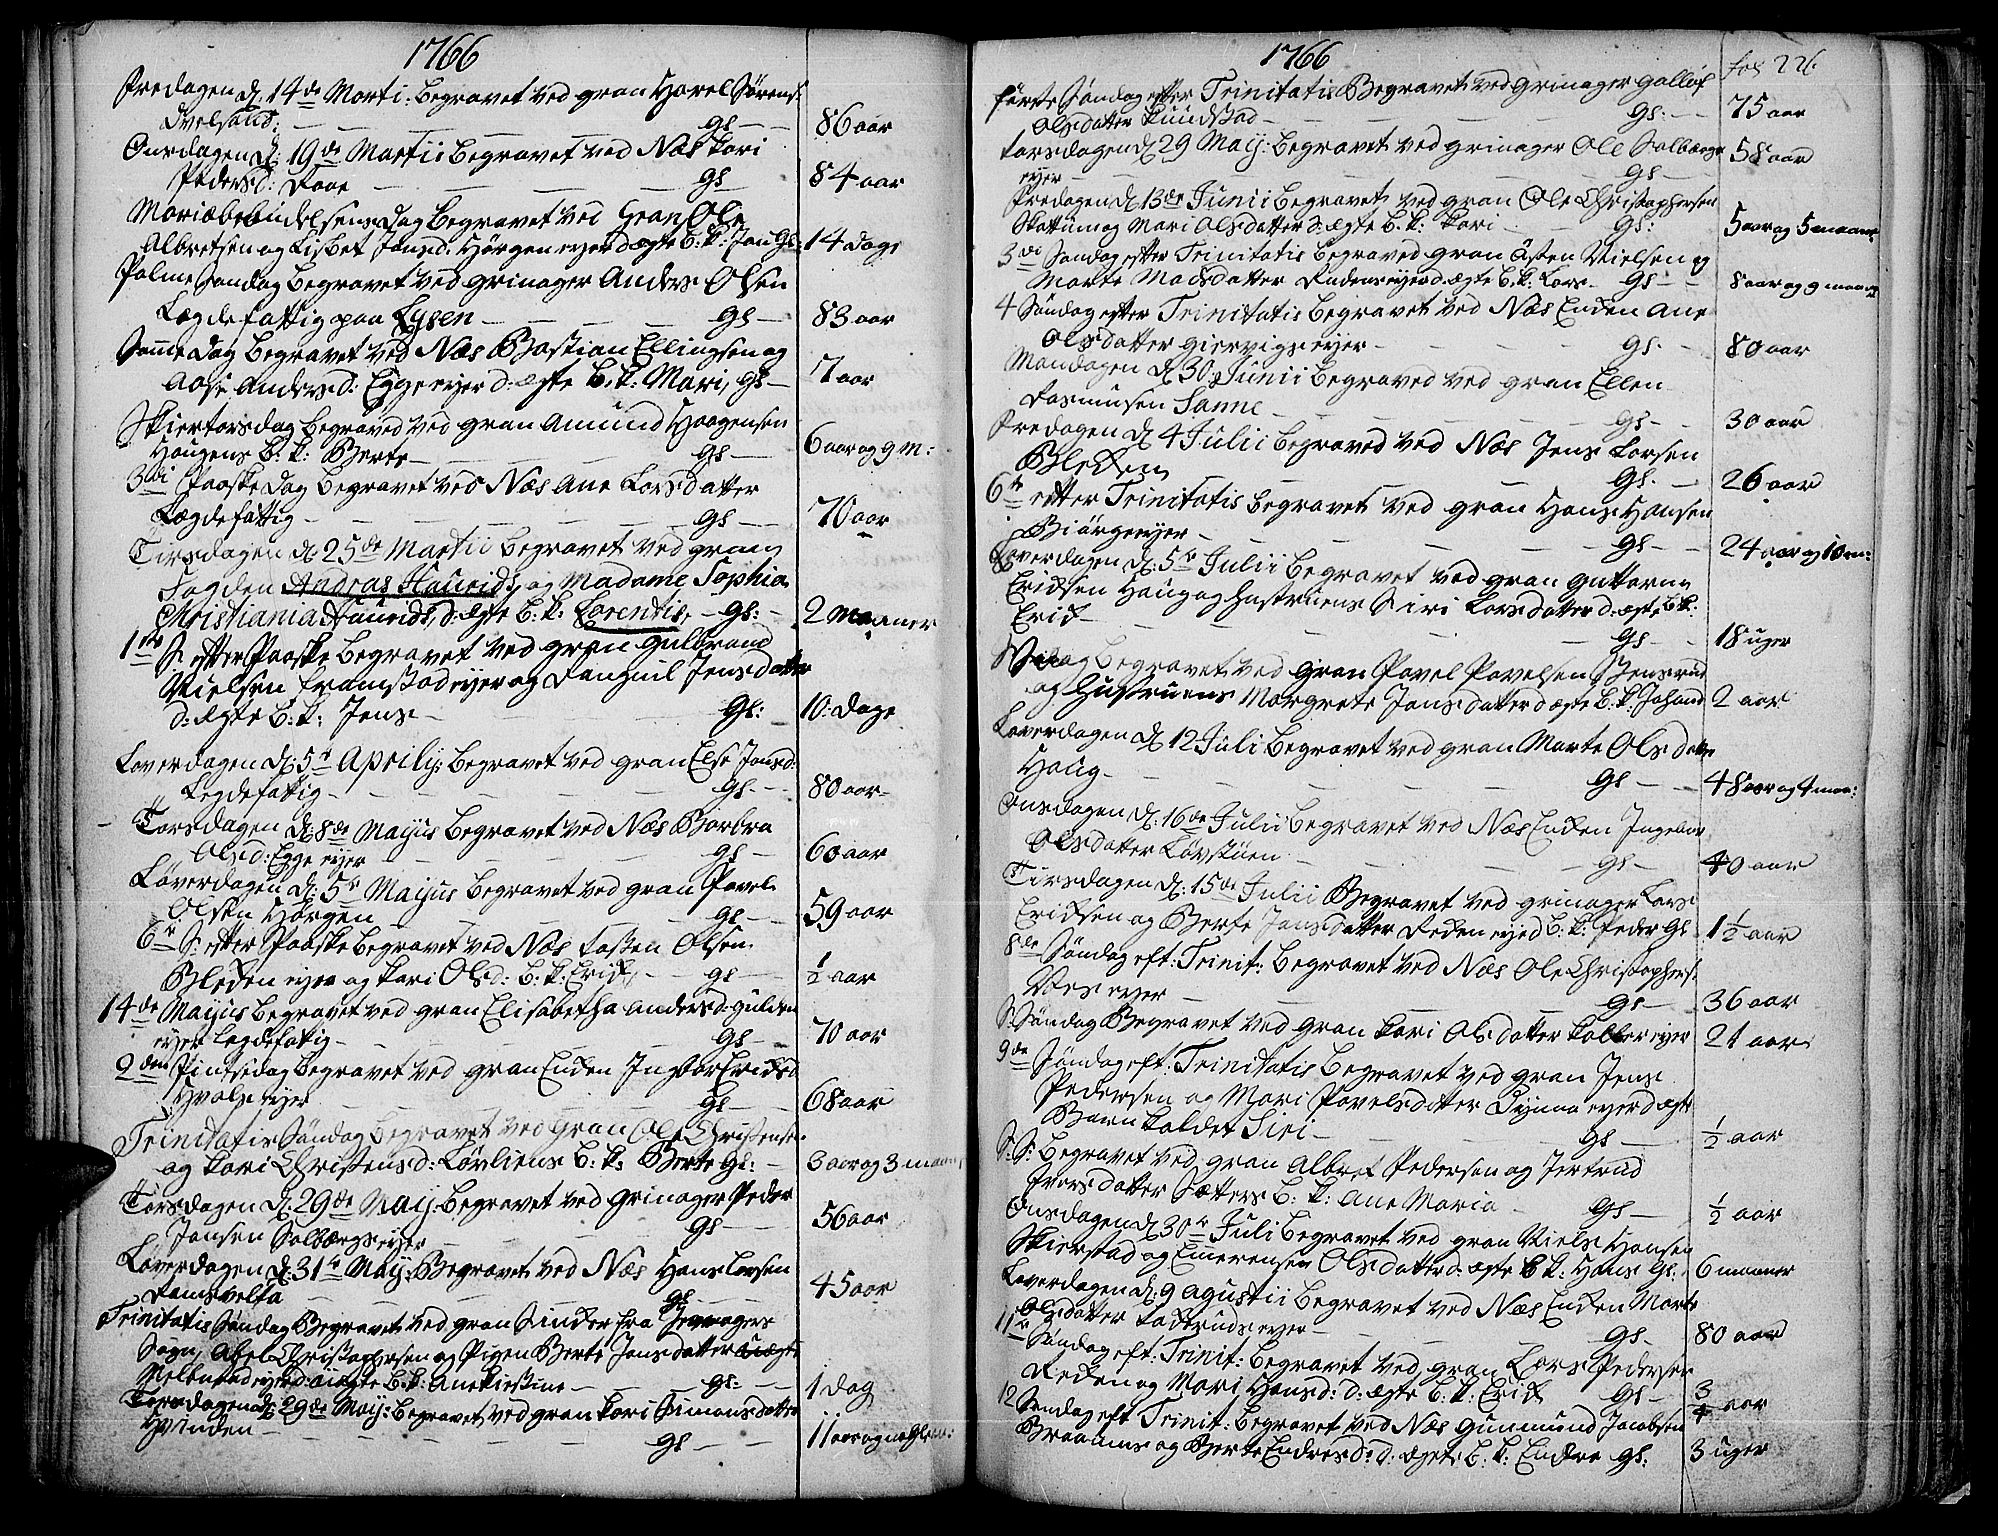 1766
Fredagen d. 14de Marti: Begravet ved Gran Sørens:
gs 86 aar
Onsdagen d. 19de Martii Begravet ved Næs Kari
Pedersd: gs 84 aar
Mariæ bebudelses dag Begravet ved Gran Ole
Albretsen og Lisbet Jonsd: Hørgen eyer d: ægte b: k: Jon gs: 14 Dage
Palme Søndag begravet ved Grinager Anders Olsen
Lægdefattig paa Lysen gs 83 aar
Samme Dag begravet ved Næs Bastian Ellingsen og
Aase Andersd: Egge eyer d: ægte b: k: Mari, gs 7 aar
Skiertorsdag begraved ved Gran Amund Haagensen
Haugens b: k: Berte gs 6 aar og 9 m:
3di Paaske Dag begravet ved Næs Ane Larsdatter
Lægdefattig gs 70 aar
Tirsdagen d. 25de Martii begravet ved Gran
Fogden Andreas og Madame Sophia
Christiania d: ægte b: k: Lorentis, gs: 2 Maaner
1ste S: efter Paaske begravet ved Gran Gulbrand
Nielsen eyer og Jensdatter
d: ægte b: k: Jens gs: 10 Dage
Løverdagen d. 5te Aprilij: begravet ved Gran Else Jonsd:
Legdefattig gs 80 aar
Torsdagen d. 8de Mayus begravet ved Næs Barbra
Olsd: Egge eyer gs 60 aar
Løverdagen d: 5te Mayus begravet ved Gran Povel
Olsen Hørgen gs 59 aar
6te S: efter Paaske begravet ved Næs Tosten Olsen
Bleken eyer og Kari Olsd: b: k: Erik gs ½ aar
14de Mayus begravet ved Gran Elisabetha Andersd: Gulden
eyer Legdefattig gs 70 aar
2den Pintsedag begravet ved Gran Enken Ingbor Eriksd
Hvals eyer gs 68 aar
Trinitatis Søndag begravet ved Gran Ole Christens:
og Kari Christensd: Lørliens b: k: Berte gs: 3 aar og 3 maan
Torsdagen d: 29de Maij: begravet ved Grinager Peder
Jansen Solbergs eyer gs 56 aar
Løverdagen d. 31te Maij: Begravet ved Næs Hans Larsen
Ramsvelta gs 45 aar
Trinitatis Søndag Begravet ved Gran fra Jevnagers
Sogn, Abel Christophersen og Pigen Berte Jonsdatter
b: k: Ane Kistine gs: 1 Dag
Torsdagen d: 29de Maij: begravet ved Gran Kari Simonsdatter
Hvinden gs 11 aar og
1766
fol 226
første Søndag efter Trinitatis Begravet ved Grinager
Olsdatter gs: 75 aar
Torsdagen d. 29 Maij: begravet ved Grinager Ole Solbergs
eyer gs 58 aar
Fredagen d. 13de Junii begravet ved Gran Ole Christophersen
Skattum og Mari Olsdatter d: ægte b: k: Kari gs: 5 aar og 5 maan:
3di Søndag efter Trinitatis begraved Gran Østen Nielsen og
Marte Madsdatter eyer d: ægte b: k: Lars gs 8 aar og 9 maan
4 Søndag efter Trinitatis begravet ved Næs Enken Ane
Olsdatter Giervigs eyer gs 80 aar
Mandagen d. 30 Junii begraved ved Gran Ellen
Rasmusen Sanne gs 30 aar
Fredagen d. 4 Julii begraved ved Næs Jens Larsen
Bleken gs. 26 aar
6te efter Trinitatis begravet ved Gran Hans Hansen
Biørge eyer gs 24 aar og 10 m:
Løverdagen d. 5te Julii begravet ved Gran Guttorm
Eriksen Haug og Hustruens Siri Larsdatter d: ægte b: k:
Erik gs 18 uger
S: Dag begravet ved Gran Povel Povelsen
og Hustruens Margrete Jansdatter d: ægte b: k: Johans 2 aar
Løverdagen d. 12 Juli begravet ved Gran Marte Olsdatter
Haug gs 48 aar og 4 maa:
Onsdagen d. 16de Julii begravet ved Næs Enken Ingebor
Olsdatter Løvstuen gs 40 aar
Tirsdagen d. 15de Julii Begravet ved Grinager Lars
Eriksen og Berte Jansdatter eye d b: k: Peder gs 1½ aar
8de Søndag eft: Trinit: begravet ved Næs Ole Christophers:
eyer gs 36 aar
S: Søndag Begravet ved Gran Kari Olsdatter eyer 21 aar
9de Søndag eft: Trinitatis begravet ved Gran Jens
Pedersen og Mari Povelsdatter Dynna eyer d: ægte
Barn kaldet Siri gs ½ aar
S: S: begravet ved Gran Albret Pedersen og Jertrud
Iversdatter Sætters b: k: Ane Maria gs ½ aar
Onsdagen d. 30te Juli begravet ved Gran Niels Hansen
Skierstad og Emerense Olsdatter d: ægte b: k: Hans gs: 6 maaner
Løverdagen d. 9 Agustii begravet ved Næs Enken Marte
Olsdatter eyer gs 80 aar
11te Søndag eft: Trinit: begravet ved Gran Lars Pedersen
og Mari Hansd: d: ægte b: k: Erik gs ¾ aar
12 Søndag eft Trinit: begravet ved Næs Gunmund Jacobsen
og Berte Endresd: d: ægte b: k: Endre gs: 3 uger